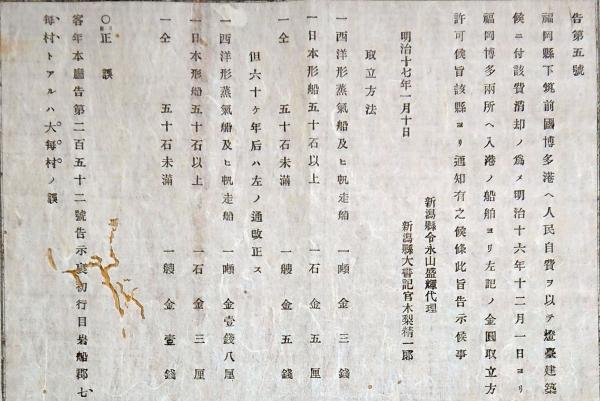 告第五號
福岡縣下筑前國博多港ヘ人民自費ヲ以テ燈臺建築
候ニ付該費消却ノ爲メ明治十六年十二月一日ヨリ
福岡博多兩所ヘ入港ノ船舶ヨリ左記ノ金圓取立方
許可候旨該縣ヨリ通知有之候條此旨告示候事
新潟縣令永山盛輝代理
明治十七年一月十日 新潟縣大書記官木梨精一郎
取立方法
一西洋形蒸氣船及ヒ帆走船 一噸金三錢
一日本形船五十石以上 一石金五厘
一仝 五十石未滿 一艘金五錢
但六十ケ年后ハ左ノ通改正ス
一西洋形蒸氣船及ヒ帆走船 一噸金壹錢八厘
一日本形船五十石以上 一石金三厘
一仝 五十石未滿 一艘金壹錢
〇正誤
客年本廳告第二百五十二號告示裏初行目岩船郡七、
每、村、トアルハ大。每。村。ノ誤